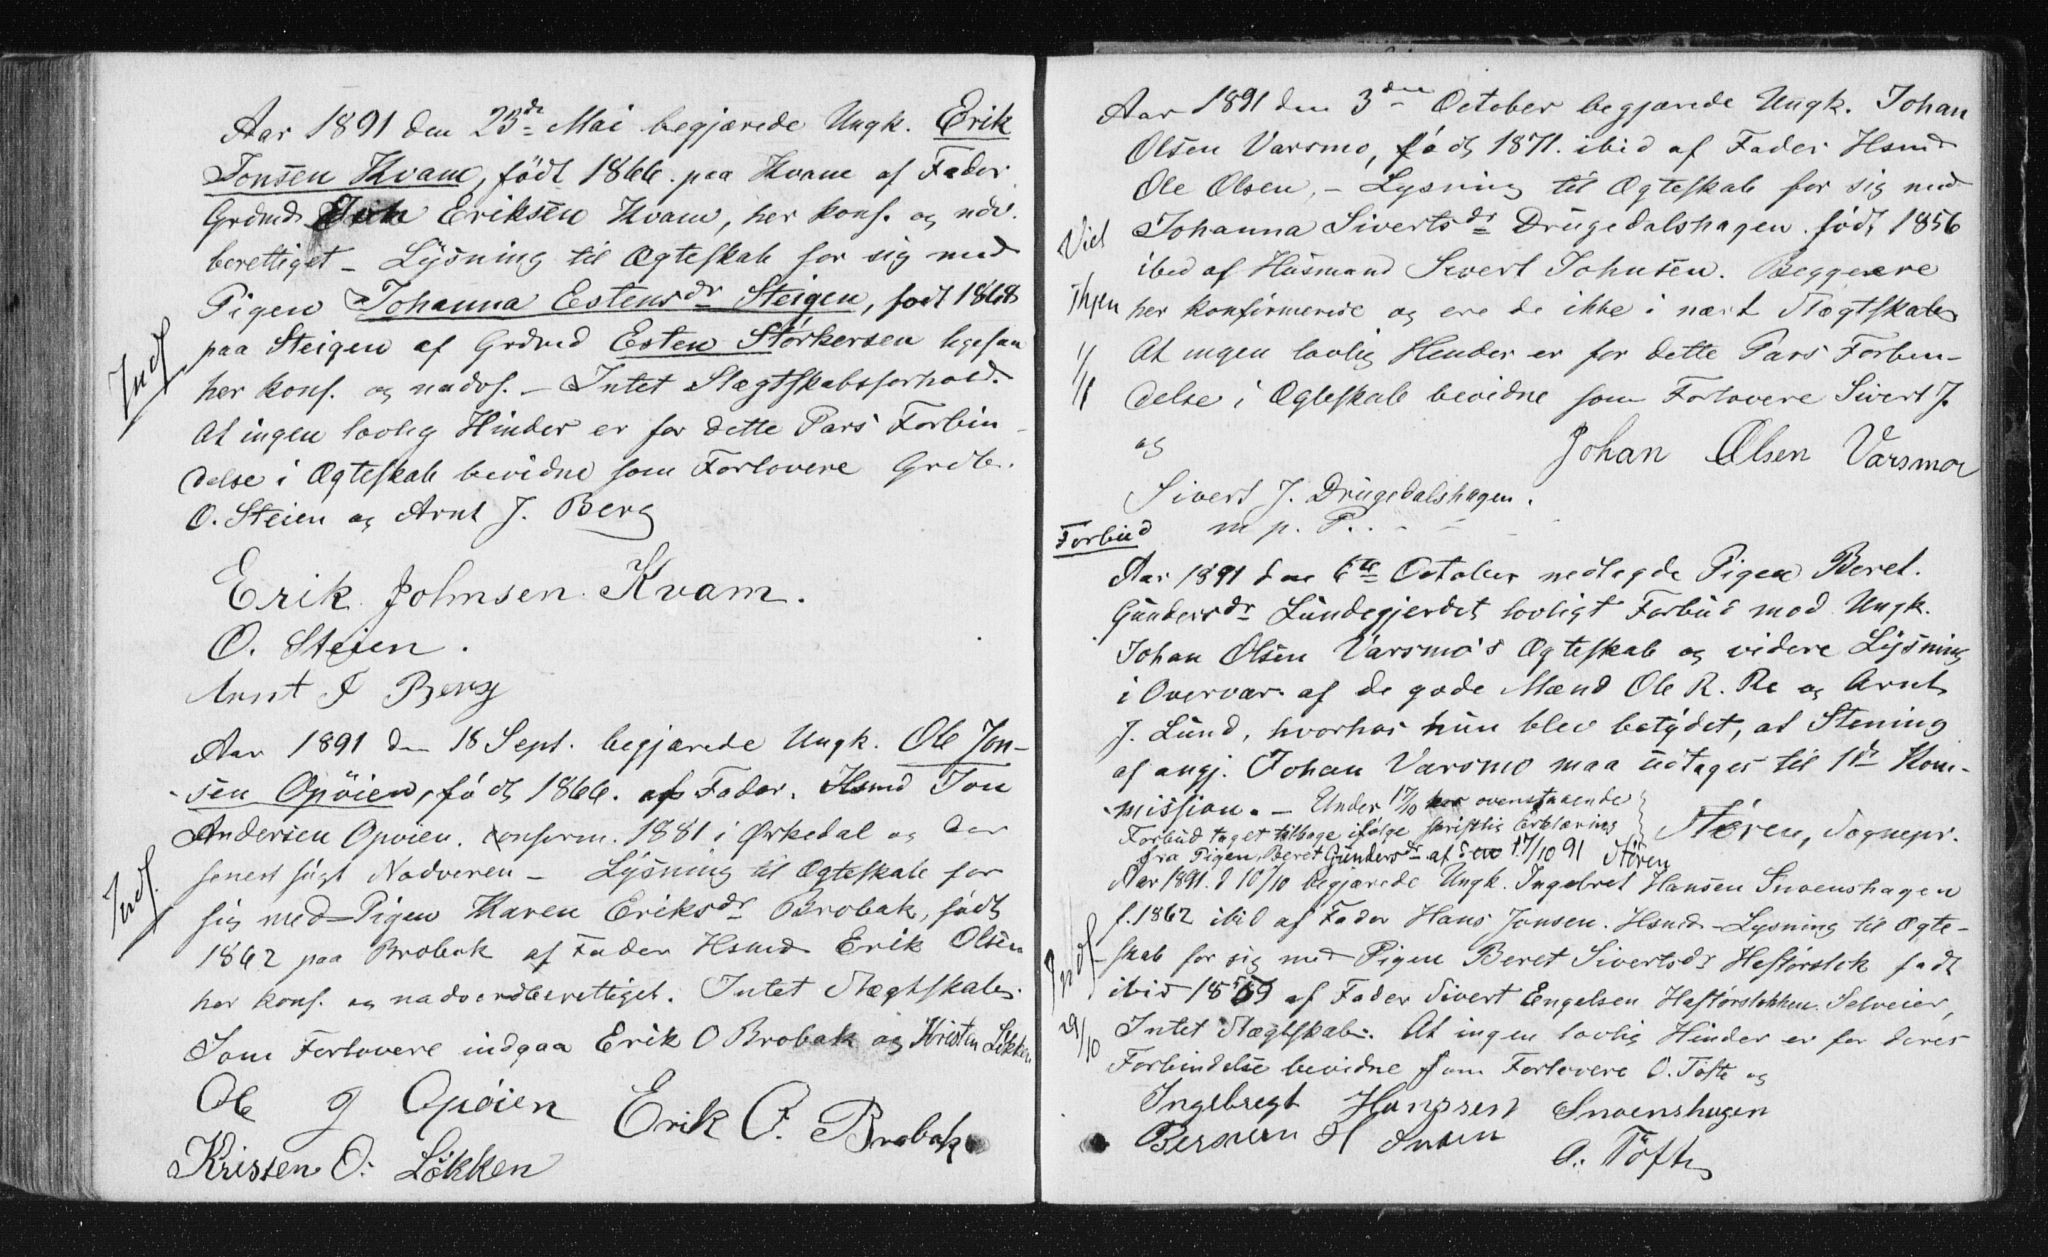 Aar 1891 den 23de Mai begjærede Ungk. Erik
Jonsen Kvam, født 1866. paa Kvam af Fader
Grdmd. Eriksen Kvam, her konf. og ndv.
berettiget – Lysning til Ægteskab for sig med
Pigen Johanna Estensdr Steigen, født 1868
paa Steigen af Grdmd Esten Størkersen ligesaa
her konf. og nadvf. – Intet Slægtskabsforhold.
Indf.
At ingen lovlig Hinder er for dette Pars Forbin-
delse i Ægteskab bevidne som Forlovere Grdb.
O. Steien og Arnt J. Berg
Erik Johnsen Kvam.
O. Steien.
Arnt J Berg
Aar 1891 den 18 Sept. begjærede Ungk. Ole Jon-
sen Opøien, født 1866. af Fader. Hsmd Jon
Andersen Opøien. conferm. 1881 i Ørkedal og der
senest søgt Nadveren – Lysning til Ægteskab for
Indf.
sig med Pigen Maren Eriksdr Brobak, født
1862 paa Brobak af Fader Hsmd Erik Olsen
her konf. og nadverdberettiget. Intet Slægtskab.
Som Forlovere indgaa Erik O Brobak og Kristen Løkken
Ole J Opøien Erik O. Brobak
Kristen O. Løkken
Aar 1891 den 3die October begjærede Ungk. Johan
Olsen Varsmo, født 1871. ibid af Fader Hsmd
Ole Olsen, – Lysning til Ægteskab for sig med
Viet
Johanna Sivertsdr Drugedalshagen. født 1856
ibid af Husmand Sivert Johnsen. Begge ere
her konfirmerede og ere de ikke i nært Slægtskab
At ingen lovlig Hinder er for dette Pars Forbin-
delse i Ægteskab bevidne som Forlovere Sivert J.
og Johan Olsen Varsmo
Sivert J. Drugedalshagen.
m. p. P.
Forbud
Aar 1891 den 6te October nedlagde Pigen Beret
Gundersdr Lundegjerdet lovligt Forbud mod Ungk.
Johan Olsen Varsmo's Ægteskab og videre Lysning
i Overvær af de gode Mænd Ole R. Re og Arnt
J. Lund, hvorhos hun blev betydet, at Stevning
af angj. Johan Varsmo maa udtages til 1ste Kom-
mission. – Under 17/10 ovenstaaende
Forbud taget tilbage ifølge skriftlig Erklæring
Støren, Sognepr.
fra Pigen Beret Gundersdr af den 17/10 91 Støren
Aar 1891. d 10/10 begjærede Ungk. Ingebret Hansen Snoenshagen
f. 1862 ibid af Fader Hans Jonsen. Hsmd – Lysning til Ægte-
Indf
skab for sig med Pigen Beret Sivertsdr født
ibid 1859 af Fader Sivert Engelsen Selveier,
29/10
Intet Slægtskab. At ingen lovlig Hinder er for deres
Forbindelse bevidne som Forlovere O. Tøfte og
Ingebregt Hanssen Snoenshagen
O. Tøfte